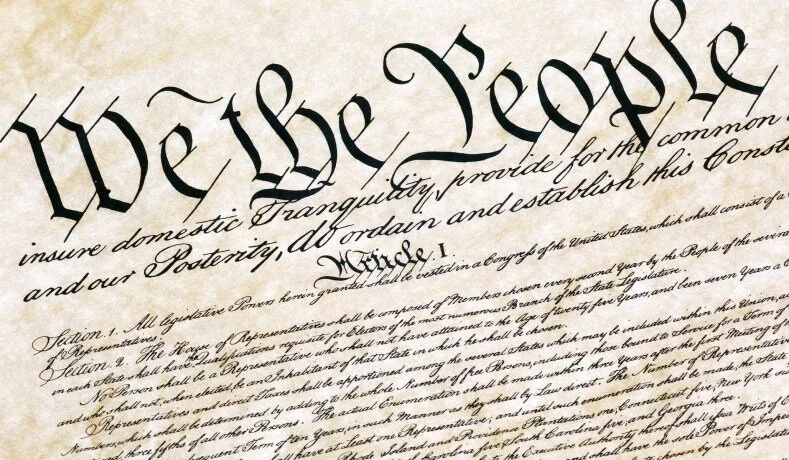 We the People
insure domestic Tranquility, provide for the common
and our Posterity, do ordain and establish this Consti
Article I.
Section 1. All legislative Powers herein granted shall be vested in a Congress of the United States, which shall consist of a
of Representatives.
Section 2. The House of Representatives shall be composed of Members chosen every second Year by the People of the several
in each State shall have Qualifications requisite for Electors of the most numerous Branch of the State Legislature.
No Person shall be a Representative who shall not have attained to the Age of twenty five Years, and been seven Years a C
and who shall not, when elected, be an Inhabitant of that State in which he shall be chosen.
Representatives and direct Taxes shall be apportioned among the several States which may be included within this Union, ac
Numbers, which shall be determined by adding to the whole Number of free Persons, including those bound to Service for a Term of
and, three fifths of all other Persons. The actual Enumeration shall be made within three Years after the first Meeting of
sequent Term of ten Years, in such Manner as they shall by Law direct. The Number of Representative
all have at Least one Representative; and until such enumeration shall be made, the State
Rhode Island and Providence Plantations one, Connecticut five, New York six
Carolina five, South Carolina five, and Georgia three.
the Executive Authority thereof shall issue Writs of E
and shall have the sole Power of Impea
chosen by the Legislat